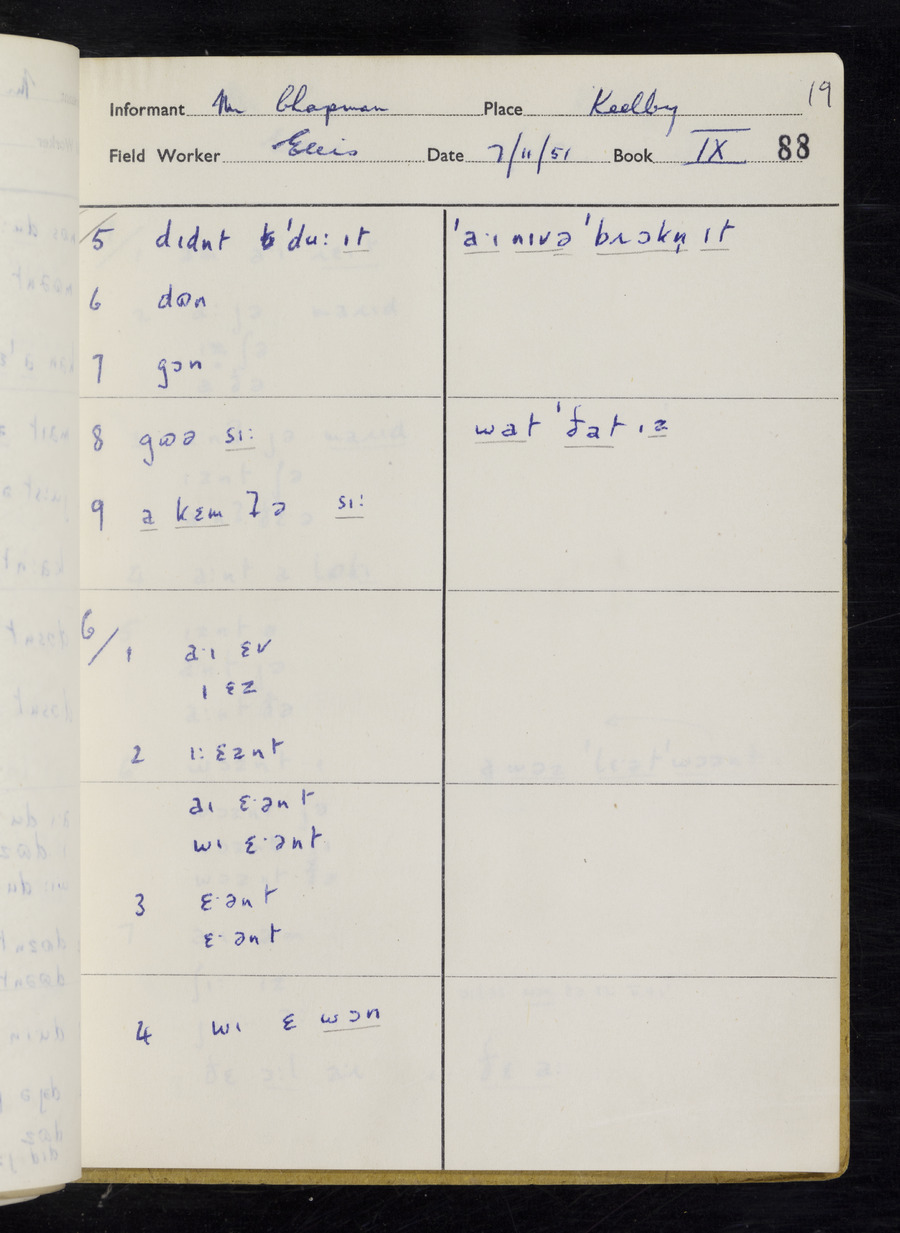 19
Informant Mr Chapman Place Keelby
Field Worker Ellis Date 7/11/51 Book IX 88
/5 dɩdnt 'du: ɩt 'a·ɩ nɩvə 'brɔkn̩ ɩt
6 dɷn
7 gɔn
8 gɷə sɩ: wat 'ðat ɩz
9 ə kɛm tə sɩ:
6/1 a·ɩ ɛv
ɩ ɛz
2 ɩ: ɛznt
aɩ ɛ·ənt
wɩ ɛ·ənt
3 ɛ·ənt
ɛ·ənt
4 wɩ ɛ wɔn